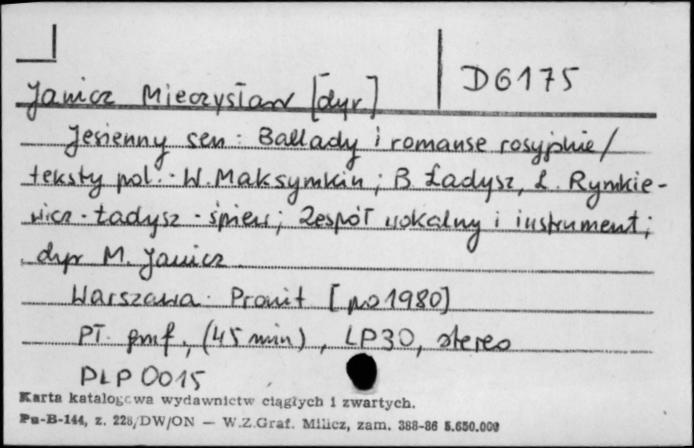 D6175
Janicz Mieczysław [dyr.]
Jesienny sen : Ballady i romanse rosyjskie /
teksty pol. - W. Maksymkin ; B. Ładysz, L. Rymkie-
wicz - Ładysz - śpiew ; Zespół wokalny i instrument ;
dyr M. Janicz
Warszawa : Pronit [po 1980]
PŁ. gmf., (45 min), LP30, stereo
PLP 0015
Karta katalogowa wydawnictw ciągłych i zwartych.
Pu-B-144, z. 228/DW/ON — W.Z.Graf. Milicz, zam. 388-86 5.650.000